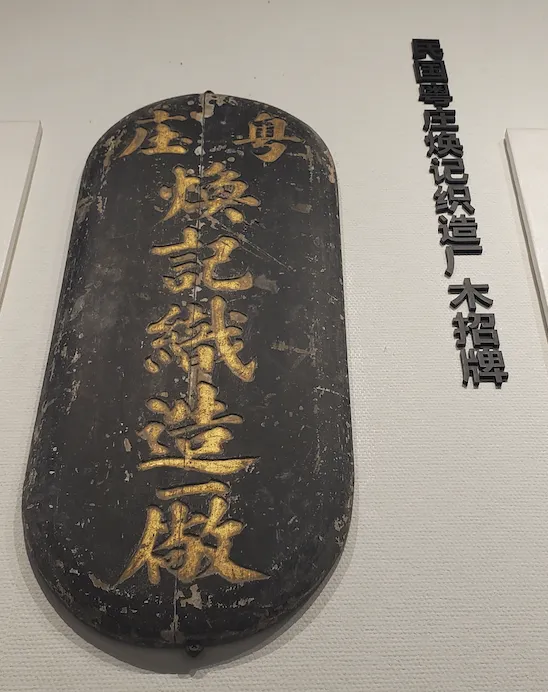 粤庄
煥記織造厰
民国粤庄焕记织造厂 木招牌